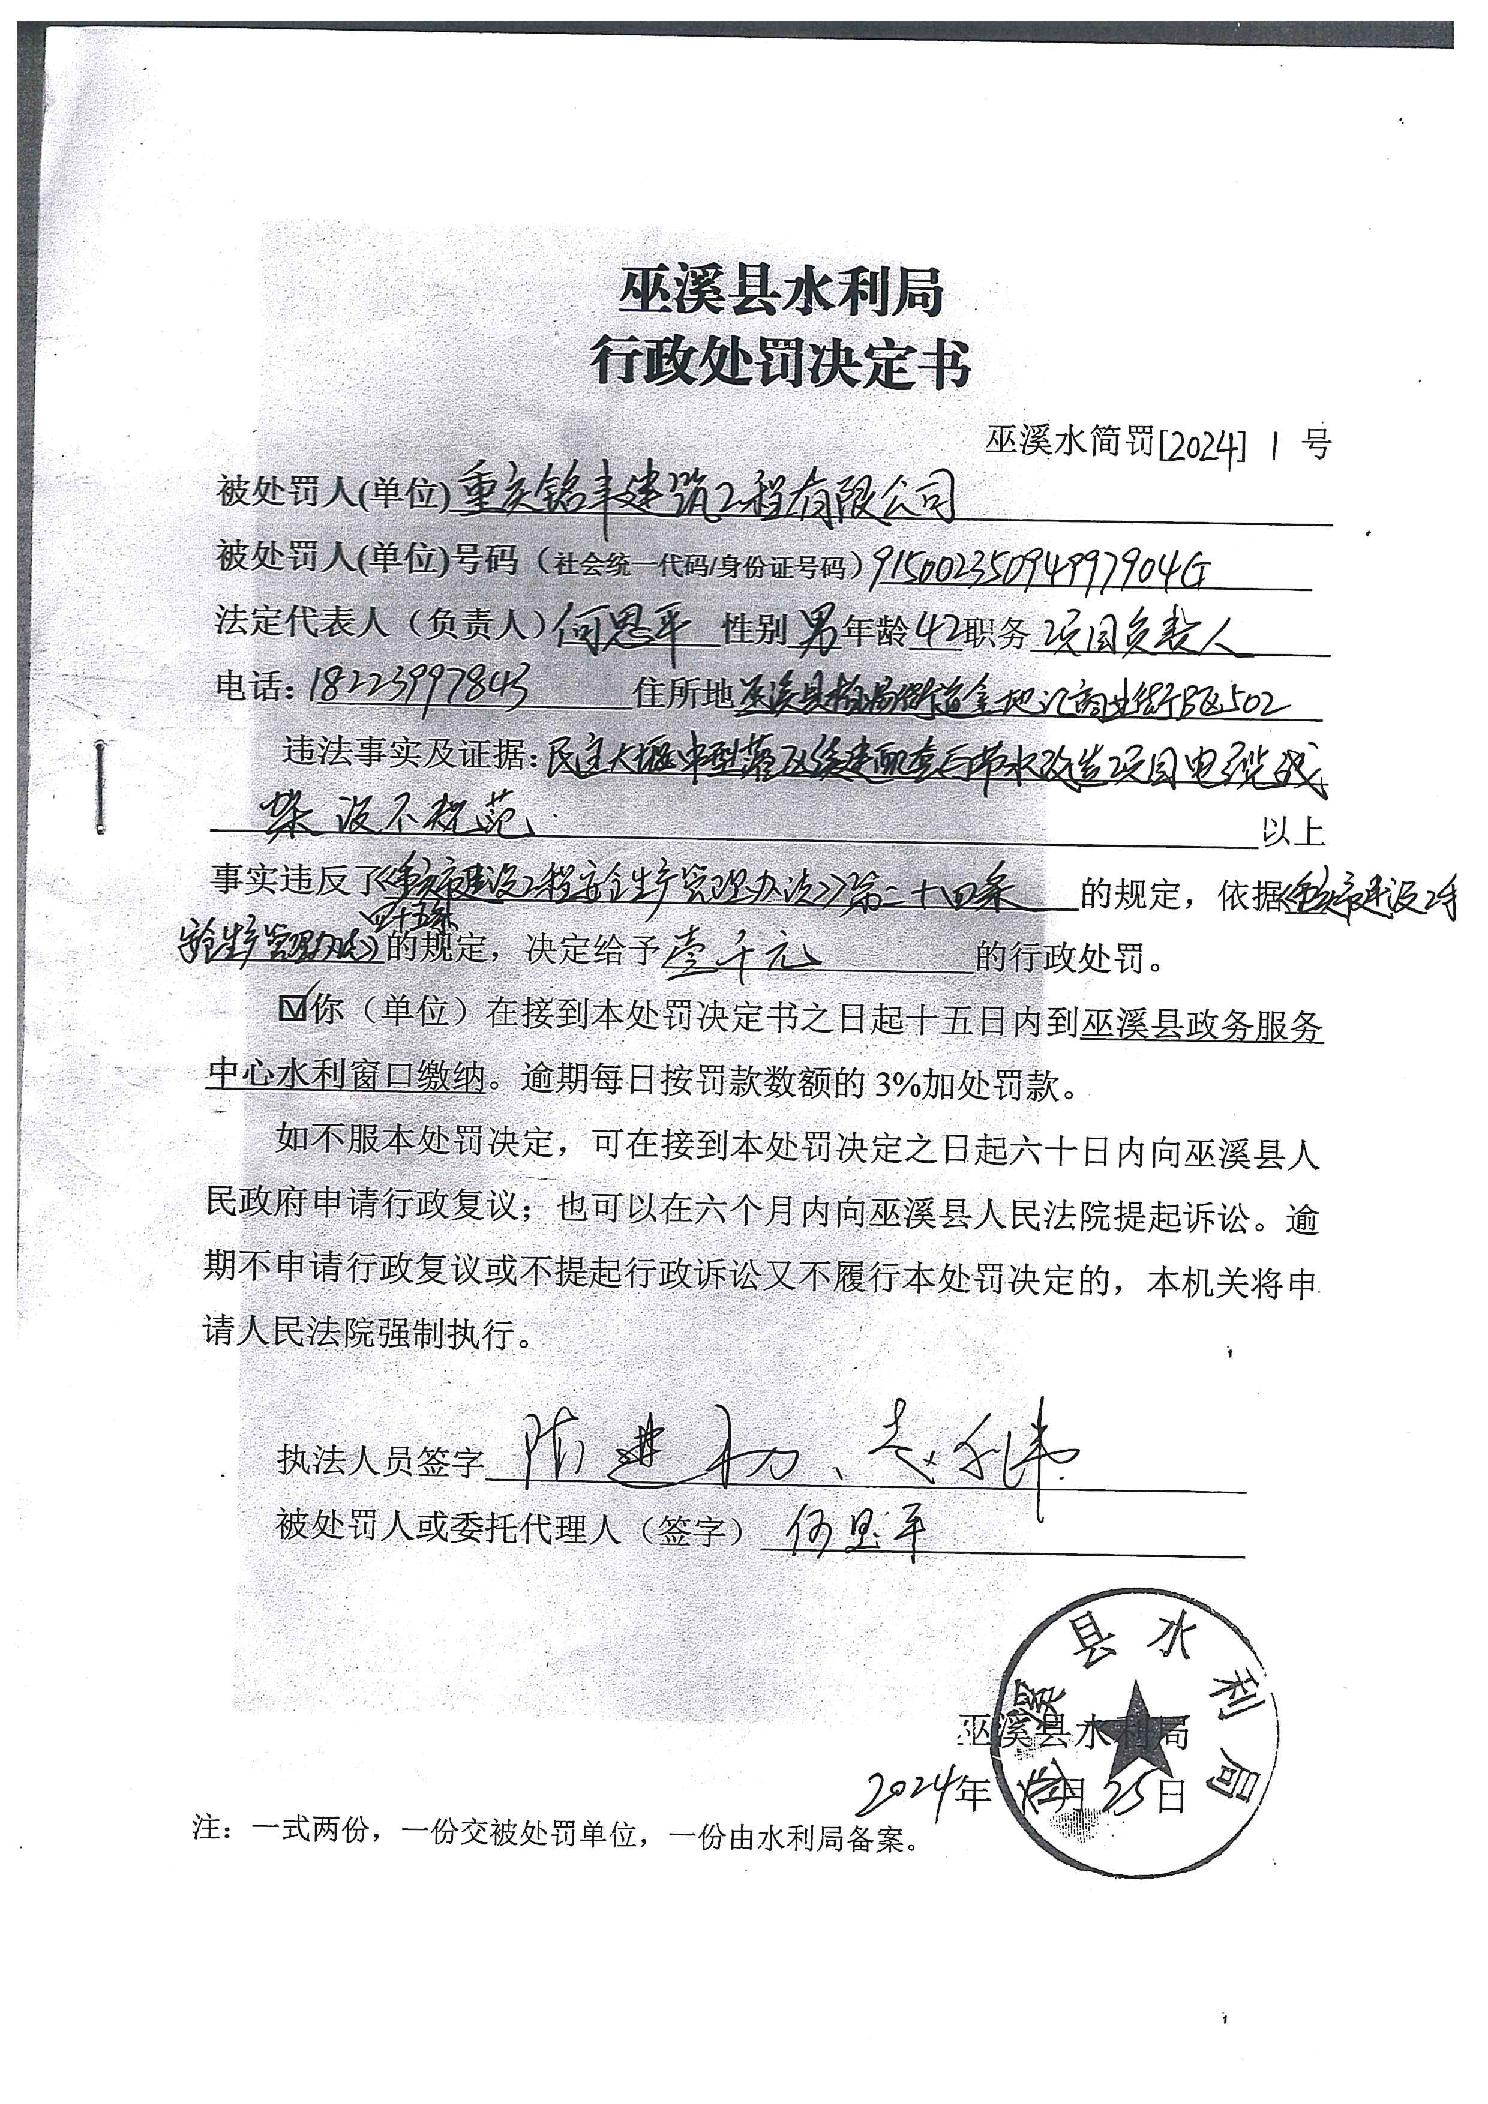 巫溪县水利局
行政处罚决定书
巫溪水简罚[2024] 1 号
被处罚人(单位) 重庆铭丰建筑工程有限公司
被处罚人(单位)号码（社会统一代码/身份证号码）91500235094997904G
法定代表人（负责人）何思平 性别 男 年龄 42 职务 项目负责人
电话: 18223997843 住所地 巫溪县柏杨街道金地汇商业街 502
违法事实及证据: 民主大堰中型灌区续建配套与节水改造项目电缆线
架设不规范 以上
事实违反了《重庆市建设工程安全生产管理办法》第二十四条 的规定，依据《重庆市建设工程
安全生产管理办法》四十五条 的规定，决定给予 壹千元 的行政处罚。
☑你（单位）在接到本处罚决定书之日起十五日内到巫溪县政务服务
中心水利窗口缴纳。逾期每日按罚款数额的 3%加处罚款。
如不服本处罚决定，可在接到本处罚决定之日起六十日内向巫溪县人
民政府申请行政复议；也可以在六个月内向巫溪县人民法院提起诉讼。逾
期不申请行政复议或不提起行政诉讼又不履行本处罚决定的，本机关将申
请人民法院强制执行。
执法人员签字 陈建
被处罚人或委托代理人（签字） 何思平
巫溪县水利局
巫溪县水利局
2024年 月 25日
注：一式两份，一份交被处罚单位，一份由水利局备案。